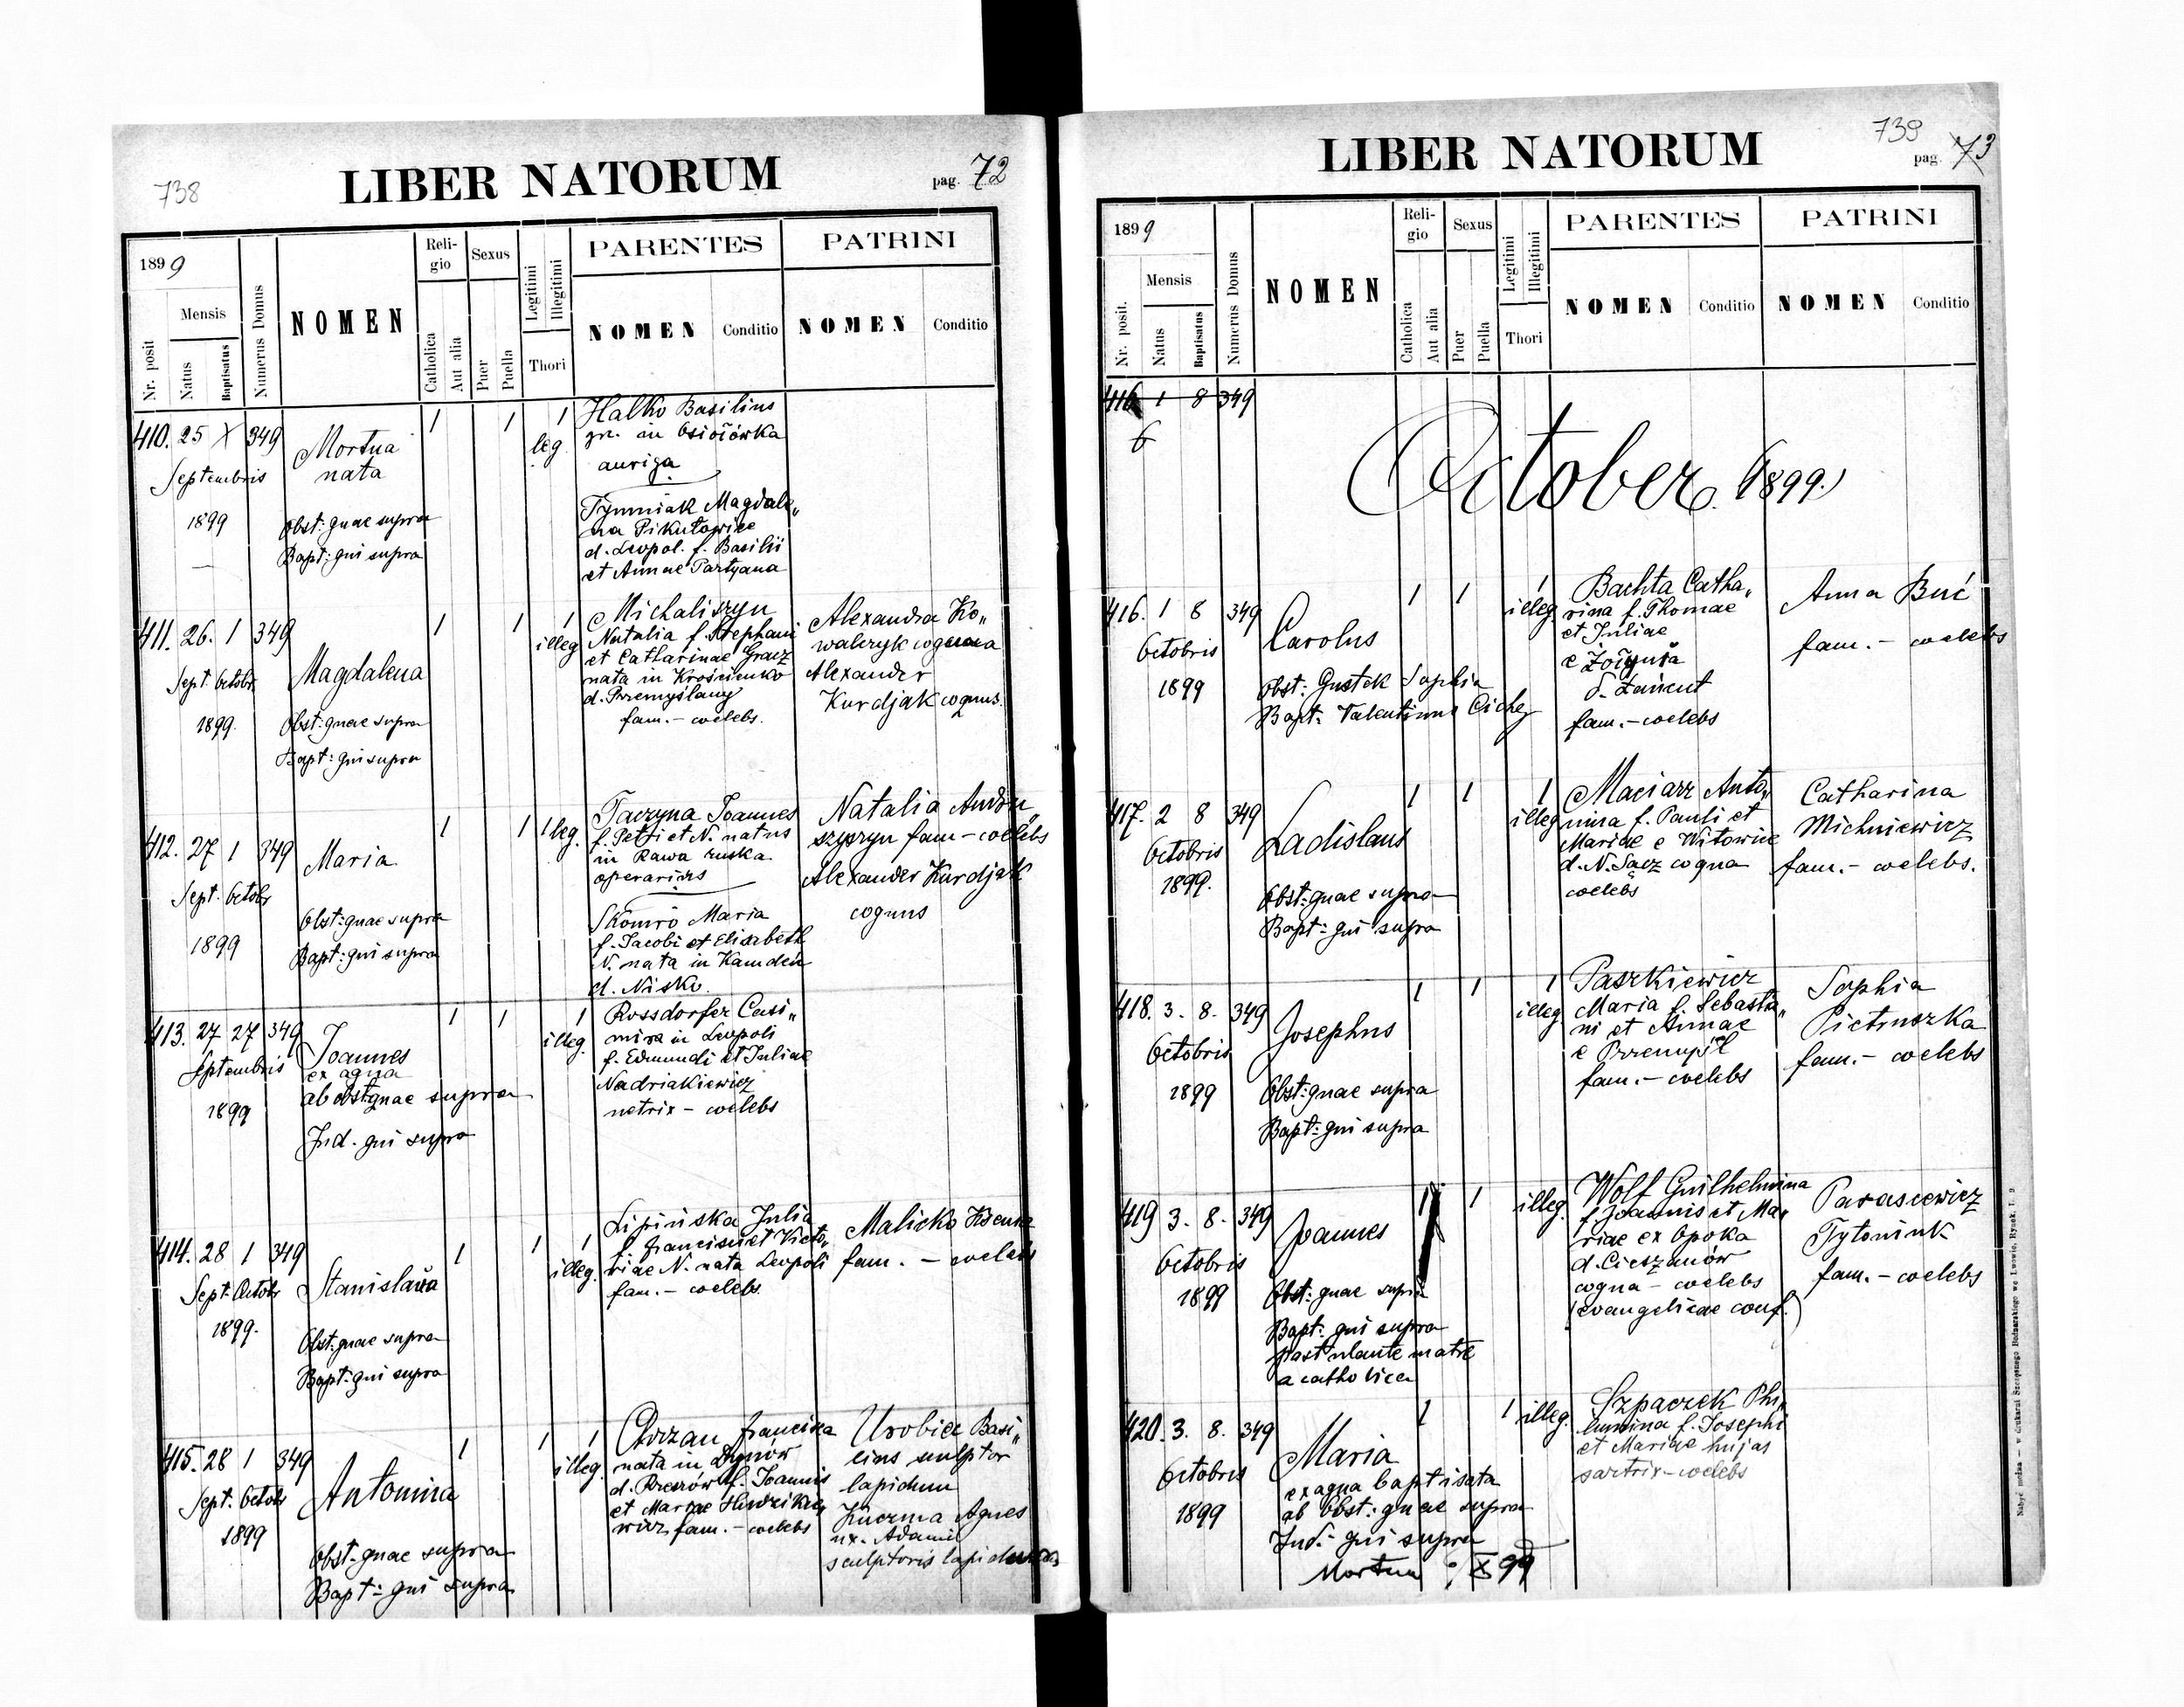 738
LIBER NATORUM
pag. 72
1899
Nr. posit
Mensis
Natus
Baptisatus
Numerus Domus
NOMEN
Reli-
gio
Catholica
Aut alia
Sexus
Puer
Puella
Legitimi
Illegitimi
Thori
PARENTES
NOMEN
Conditio
PATRINI
NOMEN
Conditio
410. 25 X 349
Septembris
1899
Mortua
nata
Obst: quae supra
Bapt: qui supra
1 1 1
leg
Halko Basilius
in
auriga
Tymniak Magdale„
na Pikułowice
d. Leopol. f. Basilii
et Annae Partyana
411. 26. 1 349
Sept. Octobr
1899.
Magdalena
Obst: quae supra
Bapt: qui supra
1 1 1
illeg
Michaliszyn
Natalia f. Stephani
et Catharinae Gracz
nata in Krościenko
d. Przemyślany
fam. – coelebs.
Alexandra Ko„
walczyk cogna
Alexander
Kurdjak coquus.
412. 27 1 349
Sept. Octobr
1899
Maria
Obst: quae supra
Bapt: qui supra
1 1 1 leg.
Taczyna Joannes
f. Petri et N. natus
in Rawa ruska
operarius
Skomro Maria
f. Jacobi et Elisabeth
N. nata in Kamdeń
d. Nisko.
Natalia
szyszyn fam – coelebs
Alexander Kurdjak
coquus
413. 27 27 349
Septembris
1899
Joannes
ex aqua
ab obst: quae supra
Ind. qui supra
1 1 1
illeg.
Rossdorfer Casi„
mira in Leopoli
f. Edmundi et Juliae
Nadriakiewicz
netrix – coelebs
414. 28 1 349
Sept. Octobr
1899.
Stanislava
Obst: quae supra
Bapt: qui supra
1 1 1
illeg.
Lipińska Julia
f. Francisci et Victo„
riae N. nata Leopoli
fam. – coelebs.
Malicko
fam. – coelebs
415. 28 1 349
Sept. Octobr
1899
Antonina
Obst: quae supra
Bapt: qui supra
1 1 1
illeg.
Chrzan Francisca
nata in Dynów
d. Rzeszów f. Joannis
et Mariae
wicz fam. – coelebs
Urobiec Basi„
lius sculptor
lapidum
Kuczma Agnes
ux. Adami
sculptoris lapidum
739
LIBER NATORUM
pag. 73
1899
Nr. posit.
Mensis
Natus
Baptisatus
Numerus Domus
NOMEN
Reli-
gio
Catholica
Aut alia
Sexus
Puer
Puella
Legitimi
Illegitimi
Thori
PARENTES
NOMEN
Conditio
PATRINI
NOMEN
Conditio
416 1 8 349
6
October (1899.)
416. 1 8 349
Octobris
1899
Carolus
Obst: Gustek Sophia
Bapt: Valentinus Cichy
1 1 1
illeg
Bachta Catha„
rina f. Thomae
et Juliae
e Żołynia
d. Łańcut
fam. – coelebs
Anna Buć
fam. – coelebs
417. 2 8 349
Octobris
1899.
Ladislaus
Obst: quae supra
Bapt: qui supra
1 1 1
illeg
Maciarz Anto„
nina f. Pauli et
Mariae e Witowice
d. N. Sącz cogna
coelebs
Catharina
Michniewicz
fam. – coelebs.
418. 3. 8. 349
Octobris
1899
Josephus
Obst: quae supra
Bapt: qui supra
1 1 1
illeg
Paszkiewicz
Maria f. Sebastia„
ni et Annae
e Przemyśl
fam. – coelebs
Sophia
Pietruszka
fam. – coelebs
419 3. 8. 349
Octobris
1899
Joannes
Obst: quae supra
Bapt: qui supra
postulante matre
acatholica
1 1
illeg.
Wolf Guilhelmina
f. Joannis et Ma„
riae ex Opoka
d. Cieszanów
cogna – coelebs
(evangelicae conf.)
Parasiewicz
Tytonink
fam. – coelebs
420. 3. 8. 349
Octobris
1899
Maria
ex aqua baptisata
ab Obst: quae supra
Ind: qui supra
Mortua X 99
1 1 illeg.
Szpaczek Phi„
lumina f. Josephi
et Mariae hujas
sartrix – coelebs